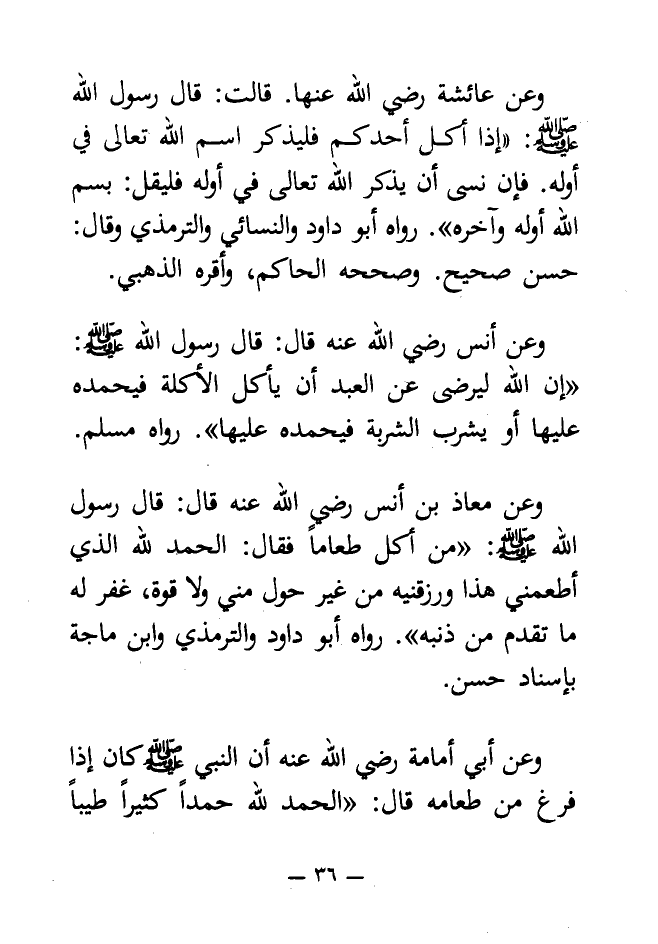 وعن عائشة رضي الله عنها. قالت: قال رسول الله
ﷺ: «إذا أكل أحدكم فليذكر اسم الله تعالى في
أوله. فإن نسى أن يذكر الله تعالى في أوله فليقل: بسم
الله أوله وآخره». رواه أبو داود والنسائي والترمذي وقال:
حسن صحيح. وصححه الحاكم، وأقره الذهبي.
وعن أنس رضي الله عنه قال: قال رسول الله ﷺ:
«إن الله ليرضى عن العبد أن يأكل الأكلة فيحمده
عليها أو يشرب الشربة فيحمده عليها». رواه مسلم.
وعن معاذ بن أنس رضي الله عنه قال: قال رسول
الله ﷺ: «من أكل طعاماً فقال: الحمد لله الذي
أطعمني هذا ورزقنيه من غير حول مني ولا قوة، غفر له
ما تقدم من ذنبه». رواه أبو داود والترمذي وابن ماجة
بإسناد حسن.
وعن أبي أمامة رضي الله عنه أن النبي ﷺ كان إذا
فرغ من طعامه قال: «الحمد لله حمداً كثيراً طيباً
— ٣٦ —